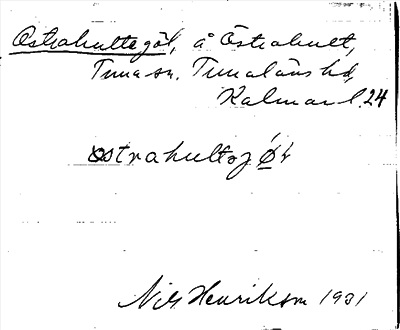 Östrahultegöl, å Östrahult,
Tuna sn. Tunaläns hd,
Kalmar l. 24
östrahultəg
Nils Henrikson 1931